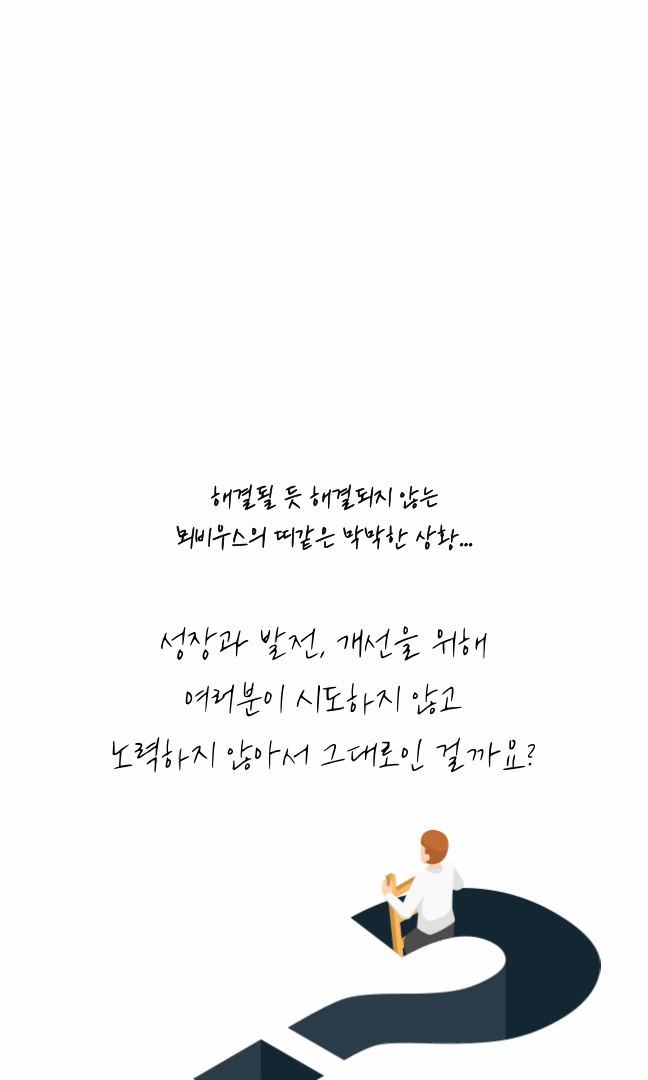 해결될 듯 해결되지 않는
뫼비우스의 띠같은 막막한 상황...
성장과 발전, 개선을 위해
여러분이 시도하지 않고
노력하지 않아서 그대로인 걸까요?